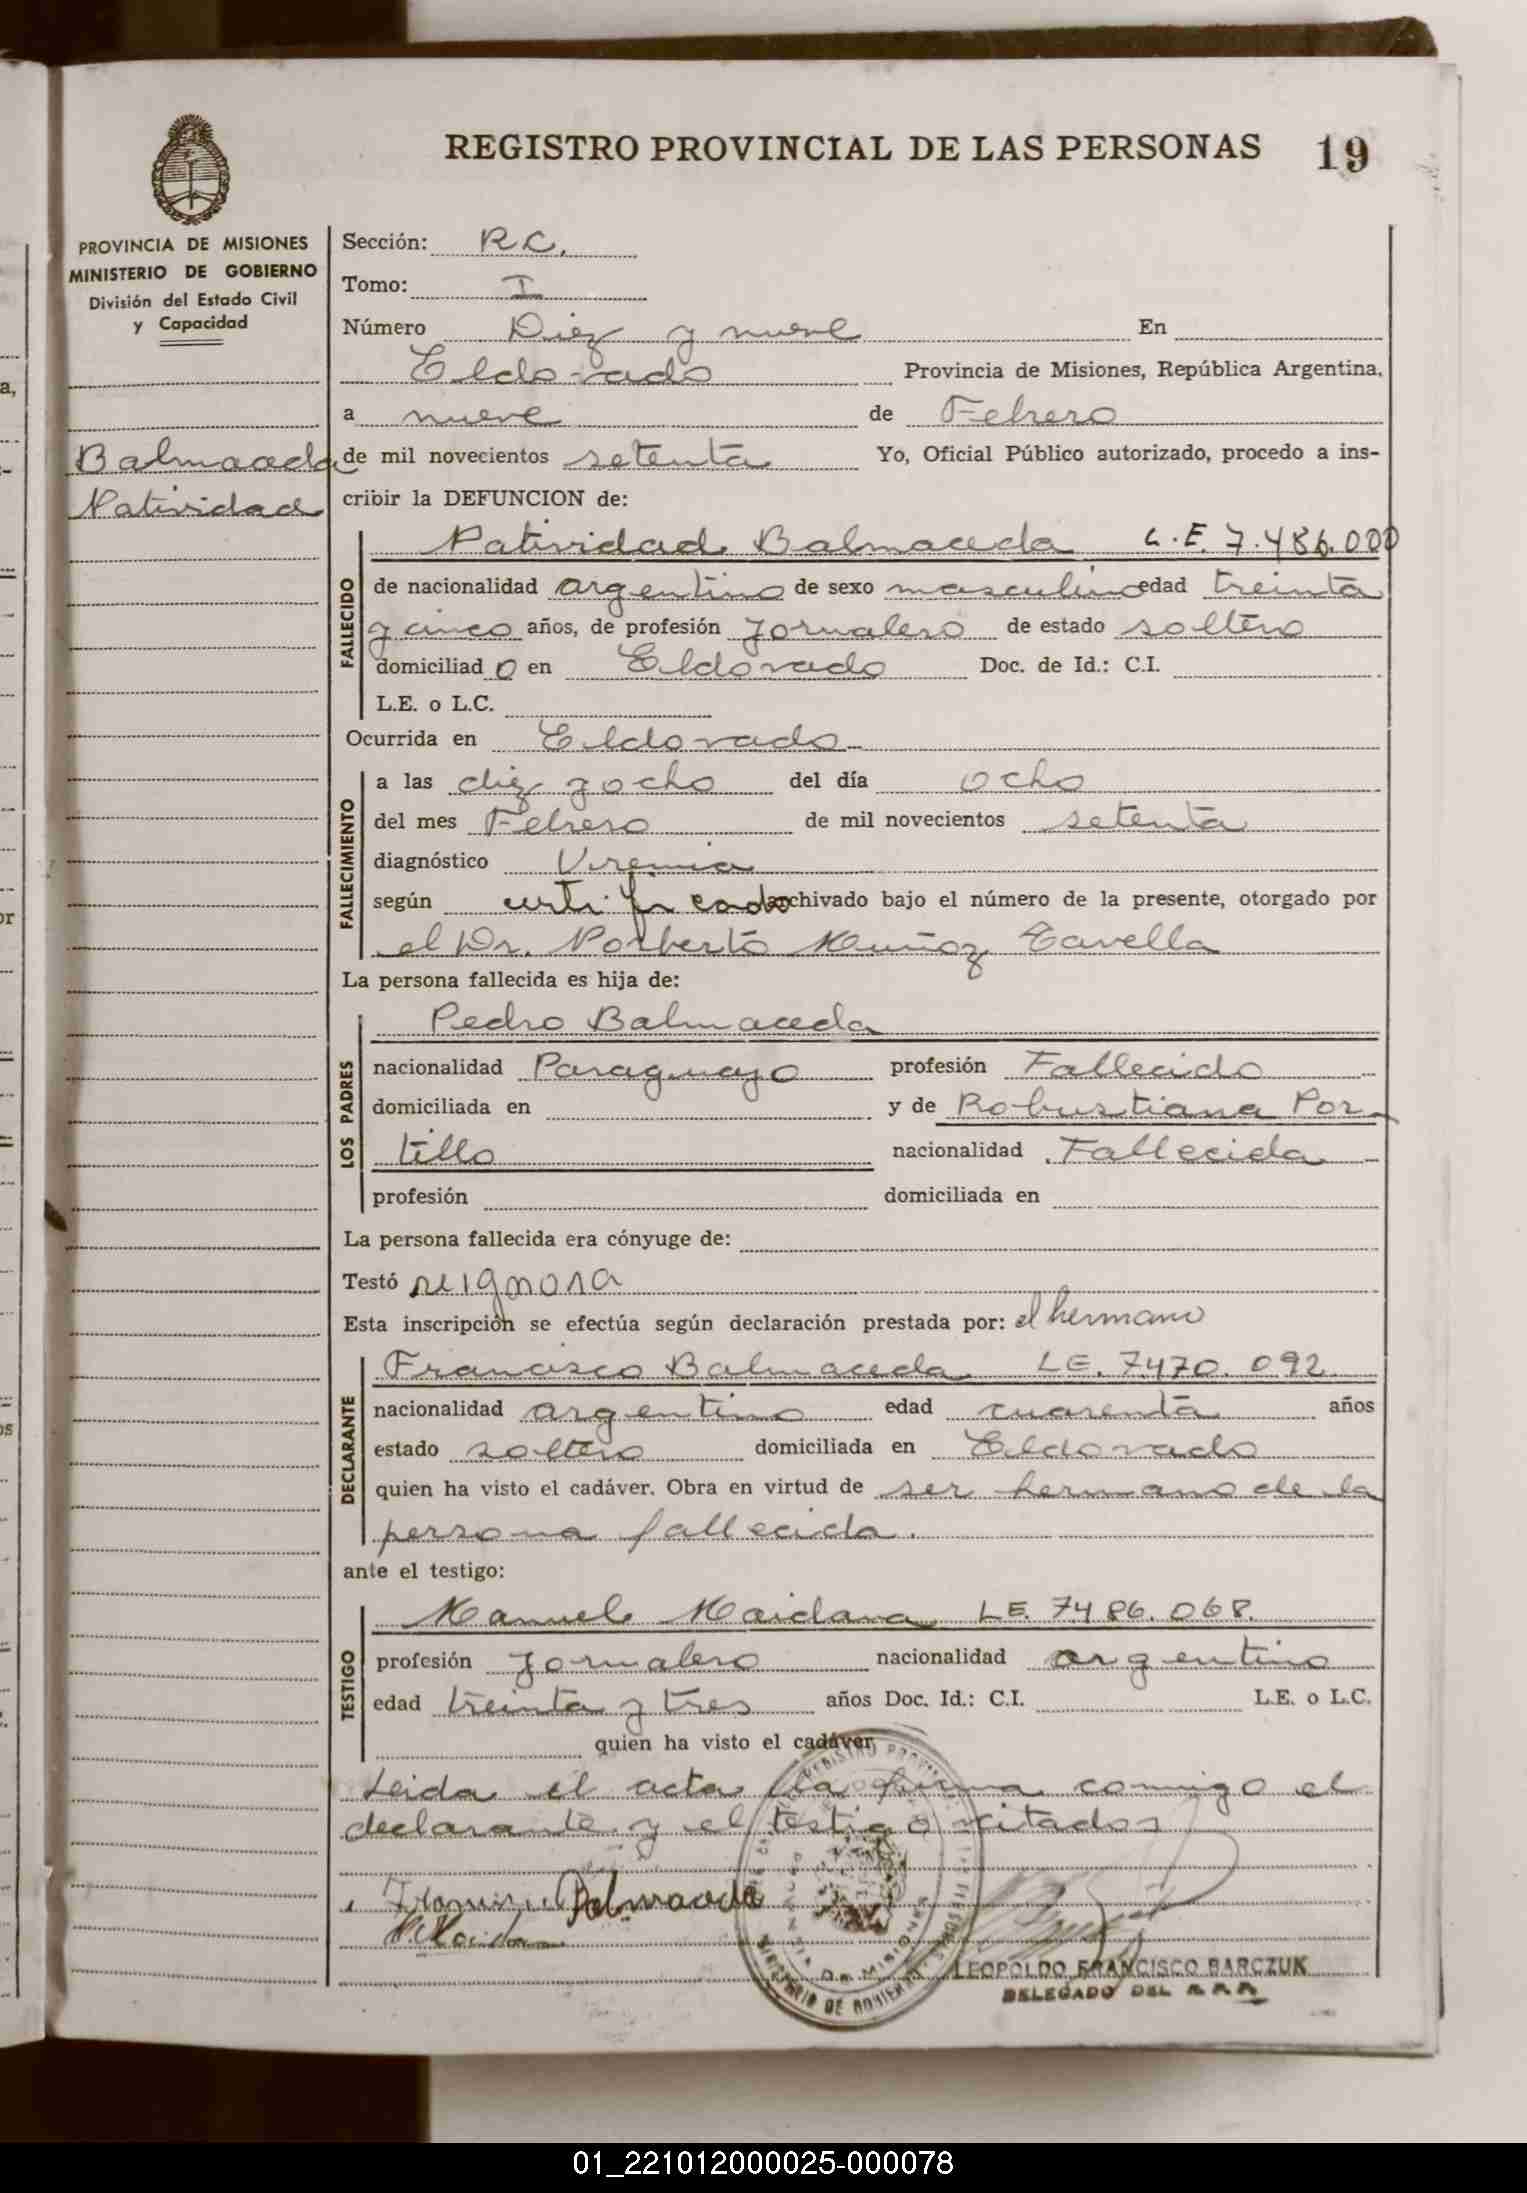 REGISTRO PROVINCIAL DE LAS PERSONAS 19
PROVINCIA DE MISIONES
MINISTERIO DE GOBIERNO
División del Estado Civil
y Capacidad
Balmaceda
Natividad
Sección: R.C.
Tomo: I
Número Diez y nueve En
Eldorado Provincia de Misiones, República Argentina,
a nueve de Febrero
de mil novecientos setenta Yo, Oficial Público autorizado, procedo a ins-
cribir la DEFUNCION de:
Natividad Balmaceda L.E. 7.486.000
FALLECIDO
de nacionalidad argentino de sexo masculino edad treinta
y cinco años, de profesión Jornalero de estado soltero
domiciliad o en Eldorado Doc. de Id.: C.I.
L.E. o L.C.
Ocurrida en Eldorado
FALLECIMIENTO
a las diez y ocho del día ocho
del mes Febrero de mil novecientos setenta
diagnóstico Uremia
según certificado archivado bajo el número de la presente, otorgado por
el Dr. Norberto Muñoz Tavella
La persona fallecida es hija de:
LOS PADRES
Pedro Balmaceda
nacionalidad Paraguayo profesión Fallecido
domiciliada en y de Robustiana Por-
tillo nacionalidad Fallecida
profesión domiciliada en
La persona fallecida era cónyuge de:
Testó se ignora
Esta inscripción se efectúa según declaración prestada por: el hermano
DECLARANTE
Francisco Balmaceda L.E. 7470.092
nacionalidad argentino edad cuarenta años
estado soltero domiciliada en Eldorado
quien ha visto el cadáver. Obra en virtud de ser hermano de la
persona fallecida.
ante el testigo:
TESTIGO
Manuel Maidana L.E. 7486.068.
profesión Jornalero nacionalidad argentino
edad treinta y tres años Doc. Id.: C.I. L.E. o L.C.
quien ha visto el cadáver
Leida el acta la firma conmigo el
declarante y el testigo citados
Francisco Balmaceda
M Maidana
LEOPOLDO FRANCISCO BARCZUK
DELEGADO DEL R.P.P.
01_221012000025-000078